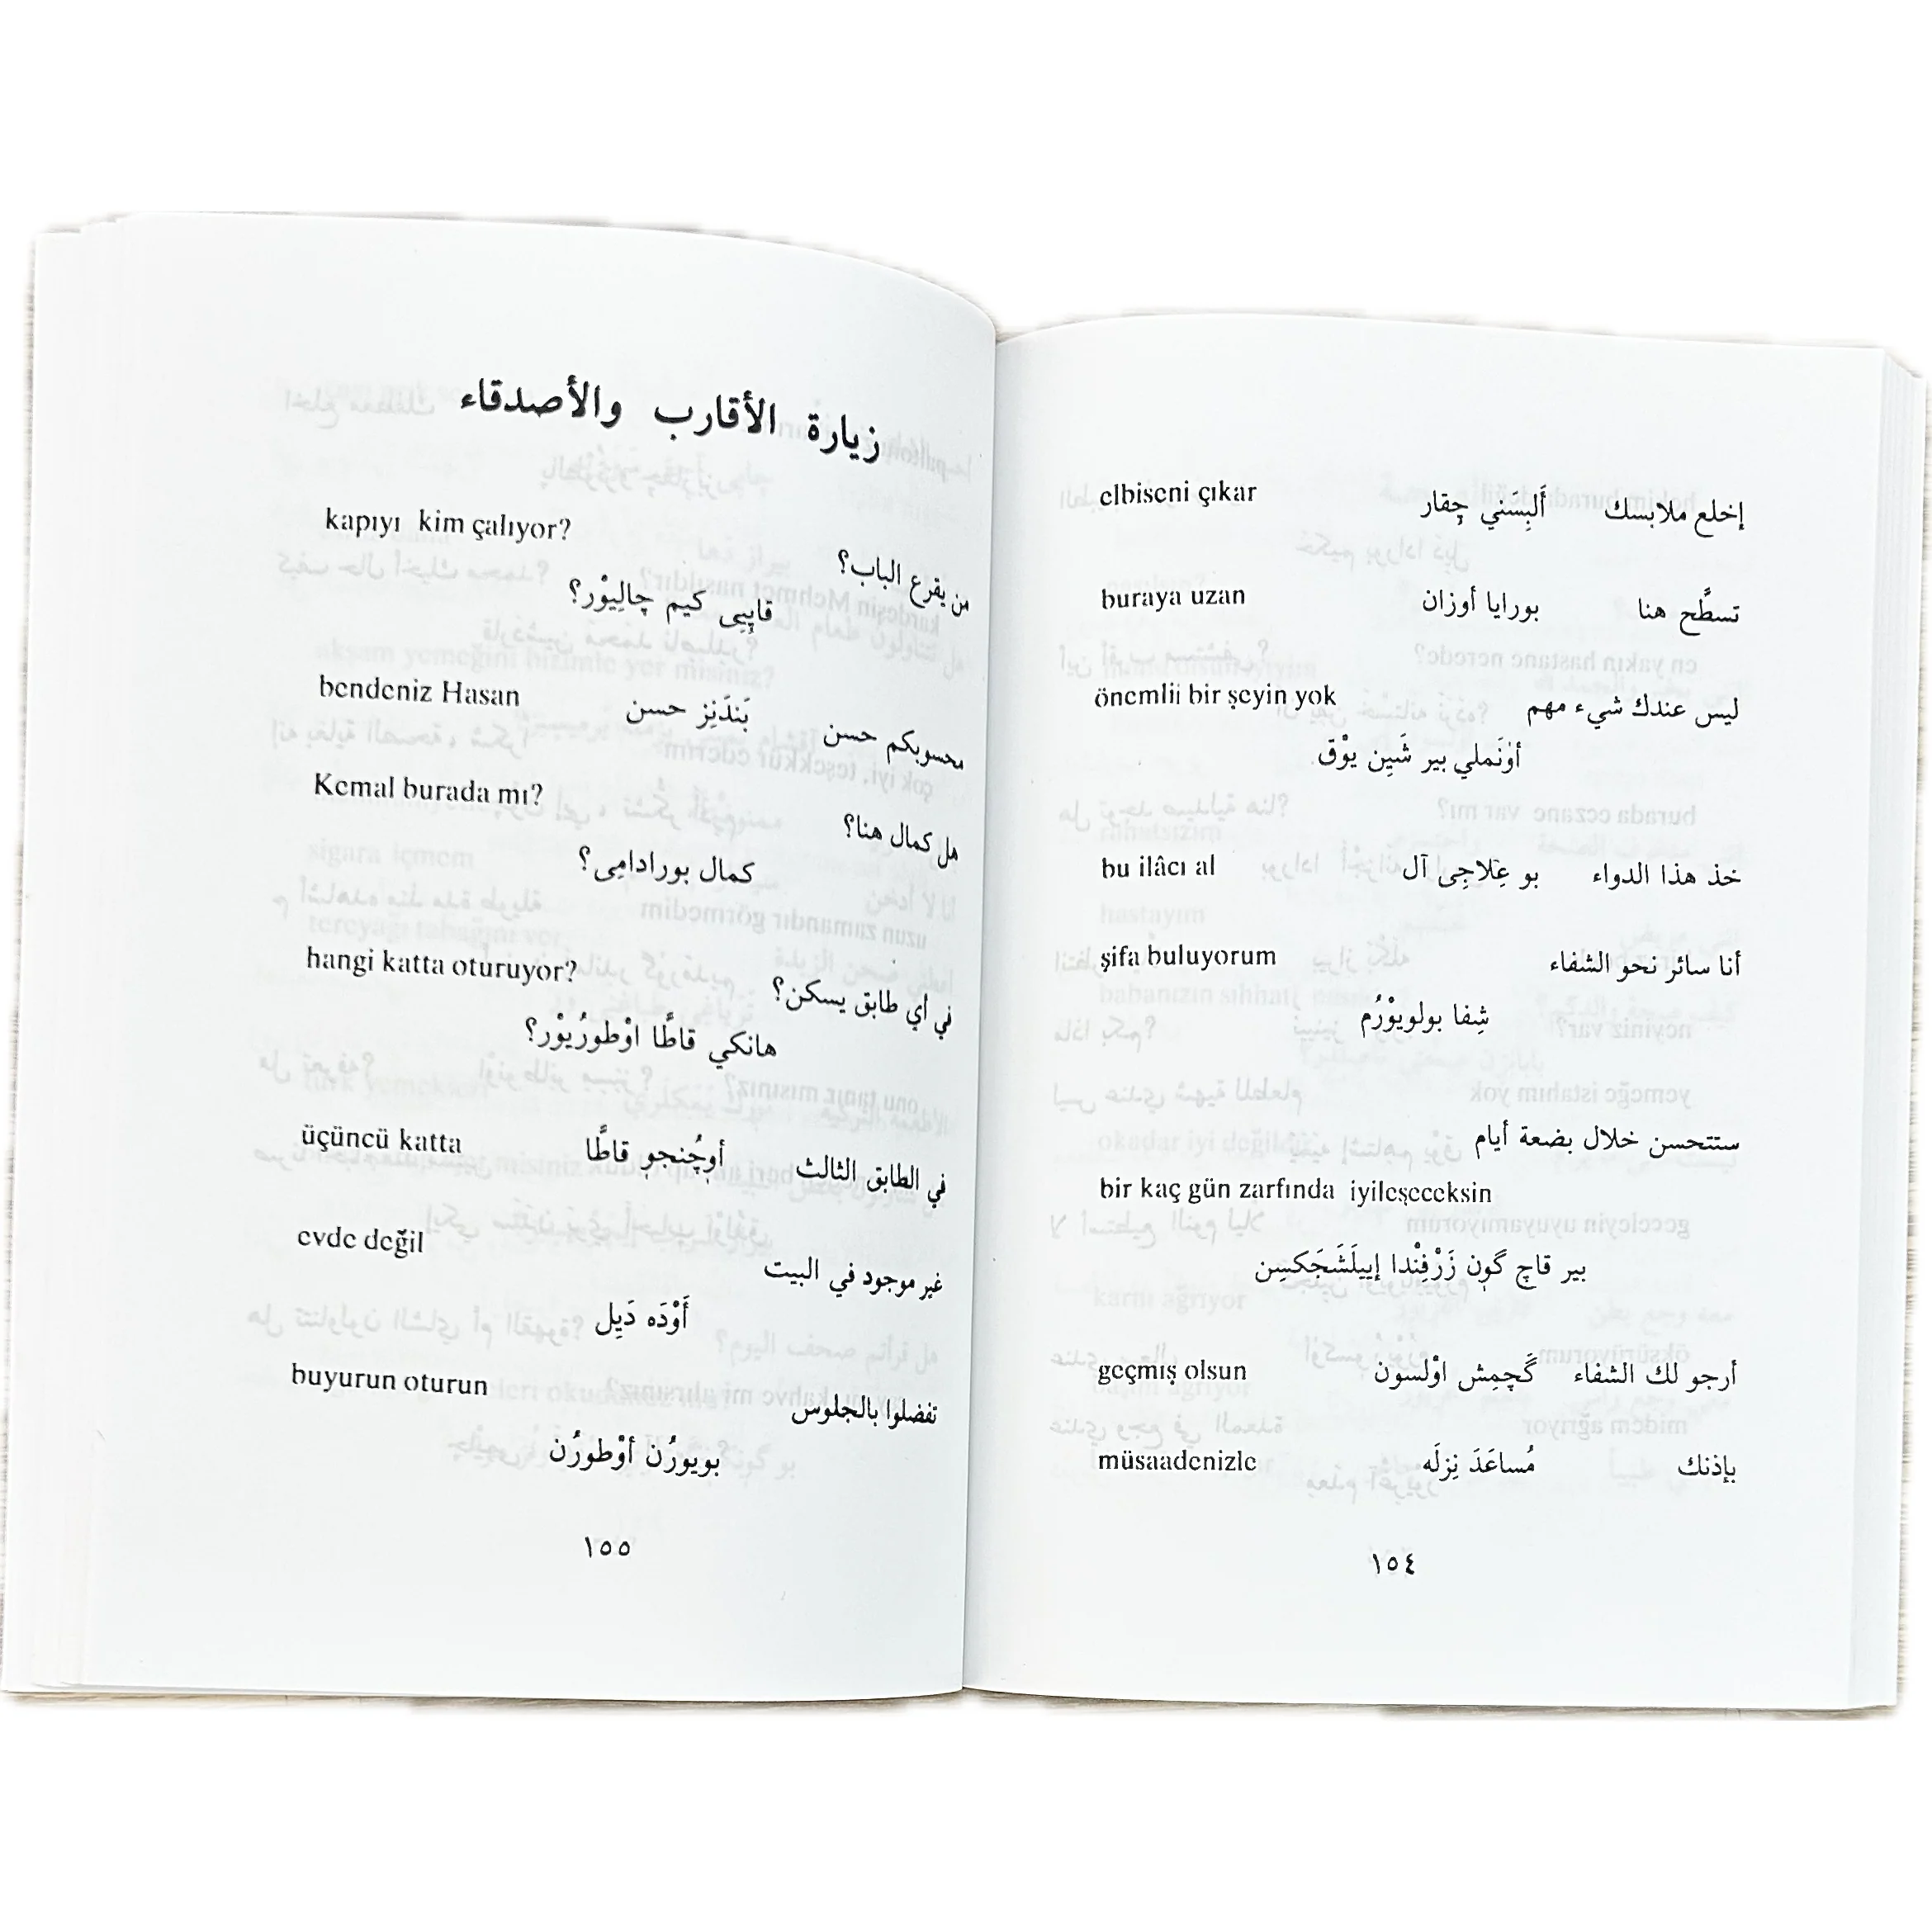 إخلع ملابسك ألبِسَني چقار elbiseni çıkar
تسطَّح هنا بورايا أوزان buraya uzan
ليس عندك شيء مهم önemlii bir şeyin yok
أوٰنَملي بير شَيِن يوْق
خذ هذا الدواء بو عِلاجِى آل bu ilâcı al
أنا سائر نحو الشفاء şifa buluyorum
شِفا بولويوْرُم
ستتحسن خلال بضعة أيام
bir kaç gün zarfında iyileşeceksin
بير قاچ گوٖن زَرْفِنْدا إييلَشَجَكسِن
أرجو لك الشفاء گَچمِش اوْلسون geçmiş olsun
بإذنك مُساعَدَ نِزلَه müsaadenizle
١٥٤
زيارة الأقارب والأصدقاء
kapıyı kim çalıyor?
من يقرع الباب؟
قاپِيِى كيم چالِيوْر؟
محسوبكم حسن بَندَنِز حسن bendeniz Hasan
Kemal burada mı?
هل كمال هنا؟
كمال بورادامِى؟
hangi katta oturuyor?
في أي طابق يسكن؟
هانكي قاطَّا اوْطورُيوْر؟
في الطابق الثالث أوچُنجو قاطَّا üçüncü katta
evde değil
غير موجود في البيت
أَوْدَه دَيِل
buyurun oturun
تفضلوا بالجلوس
بويورُن أوْطورُن
١٥٥